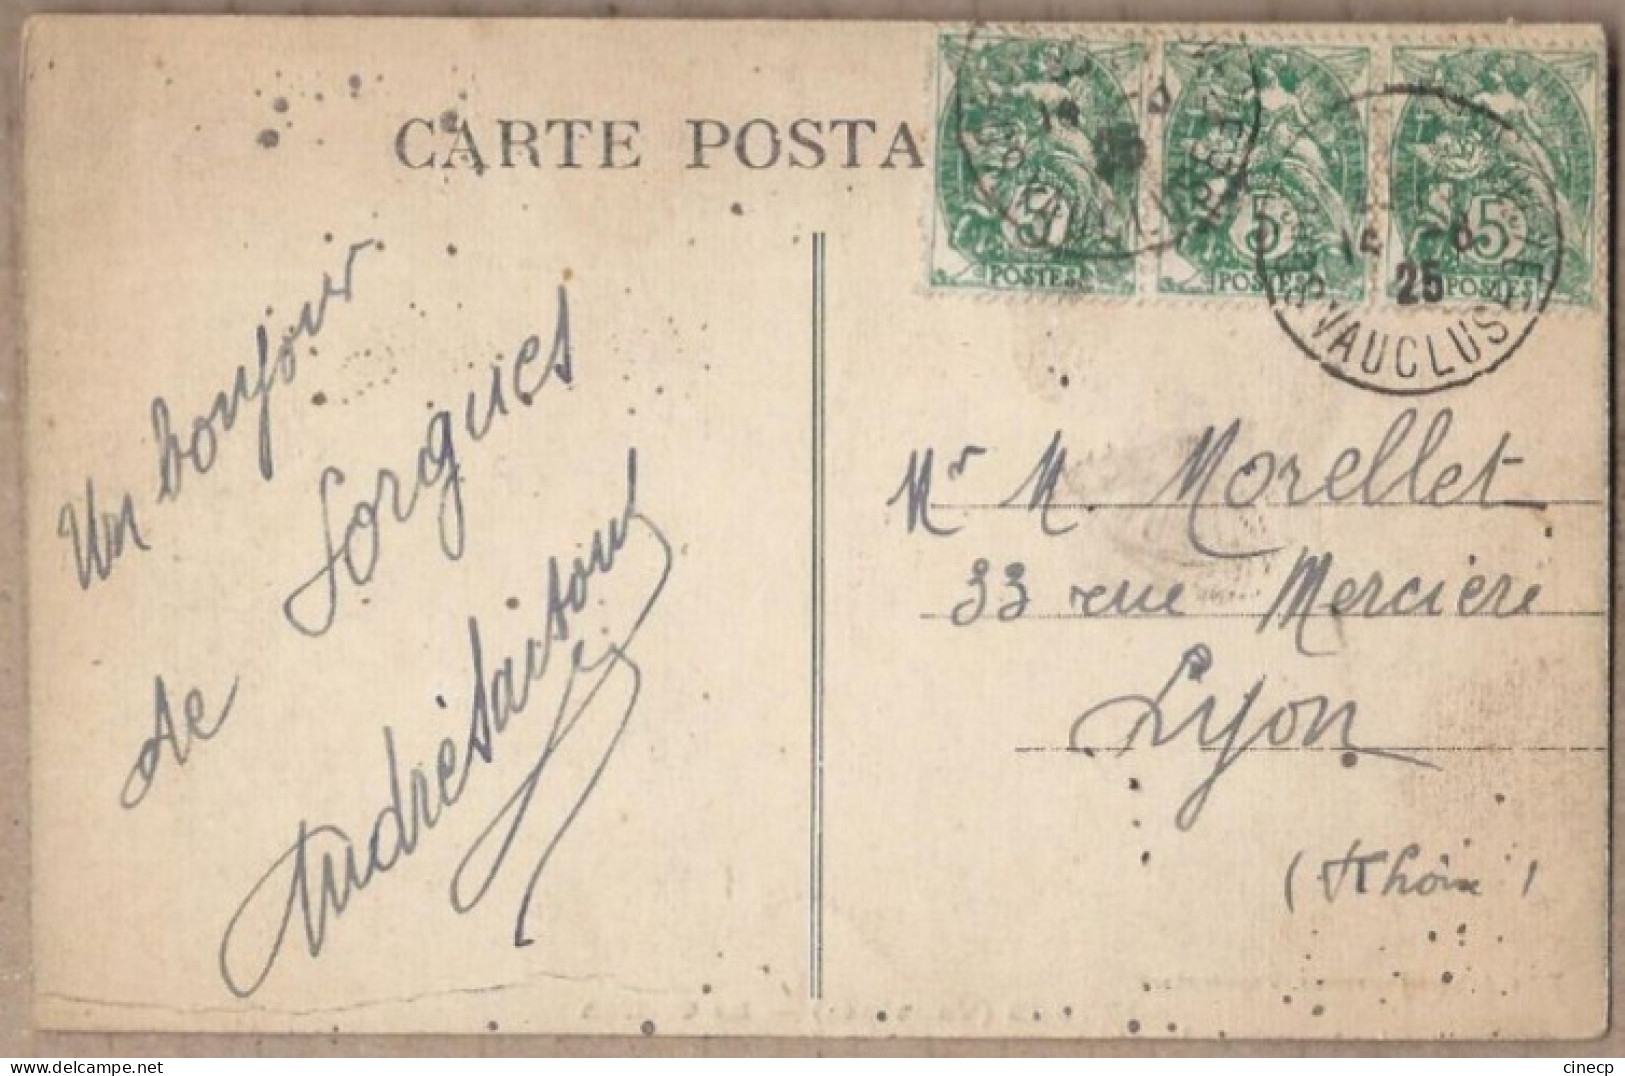 CARTE POSTA
5c 5c 5c
POSTES POSTES POSTES
25
VAUCLUSE
Un bonjour
de Sorgues
André
Mr M. Morellet
33 rue Mercière
Lyon
(Rhône)
cinecp